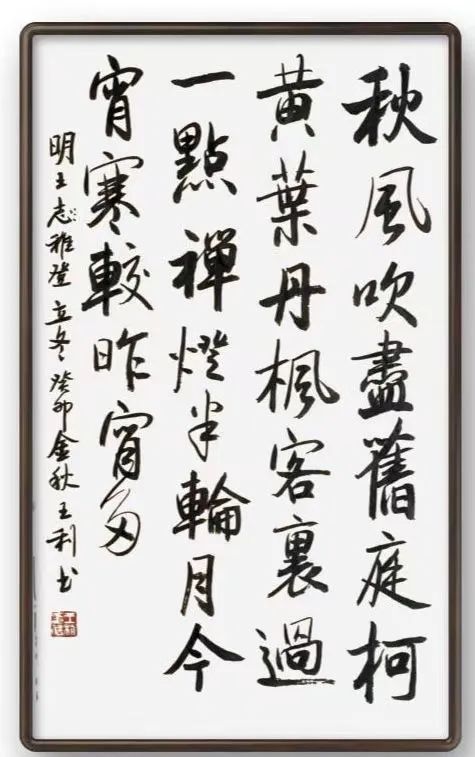 秋風吹盡舊庭柯
黃葉丹楓客裏過
一點禪燈半輪月今
宵寒較昨宵多
明王志雅登立冬癸卯金秋王利书